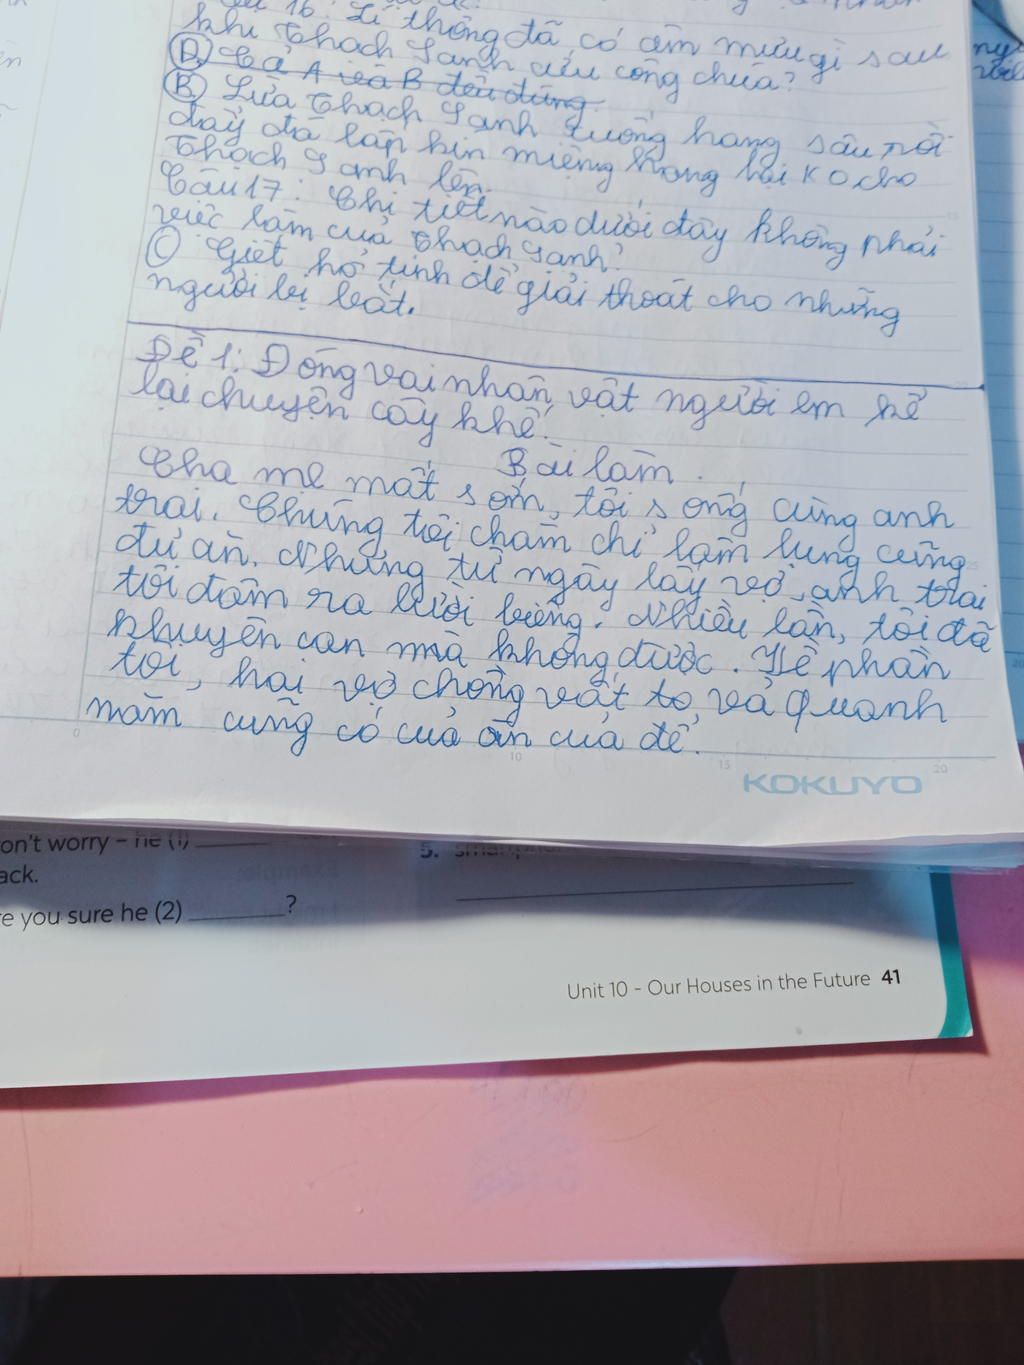 16: Lí thông đã có âm mưu gì sau
khi Thạch Sanh cứu công chúa?
D Cả A và B đều đúng
B Lừa Thạch Sanh xuống hang sâu rồi
đẩy đá lấp kín miệng hang lại ko cho
Thạch Sanh lên.
Câu 17: Chi tiết nào dưới đây không phải
việc làm của Thạch Sanh?
C Giết hổ tinh để giải thoát cho những
người bị bắt.
Đề 1: Đóng vai nhân vật người em kể
lại chuyện cây khế.
Bài làm.
Cha mẹ mất sớm, tôi sống cùng anh
trai. Chúng tôi chăm chỉ làm lụng cũng
đủ ăn. Nhưng từ ngày lấy vợ, anh trai
tôi đâm ra lười biếng. Nhiều lần, tôi đã
khuyên can mà không được. Về phần
tôi, hai vợ chồng vất vả quanh
năm cũng có của ăn của để.
0 10 15 20
KOKUYO
on't worry – he (1)
5.
ack.
e you sure he (2) ?
Unit 10 - Our Houses in the Future 41